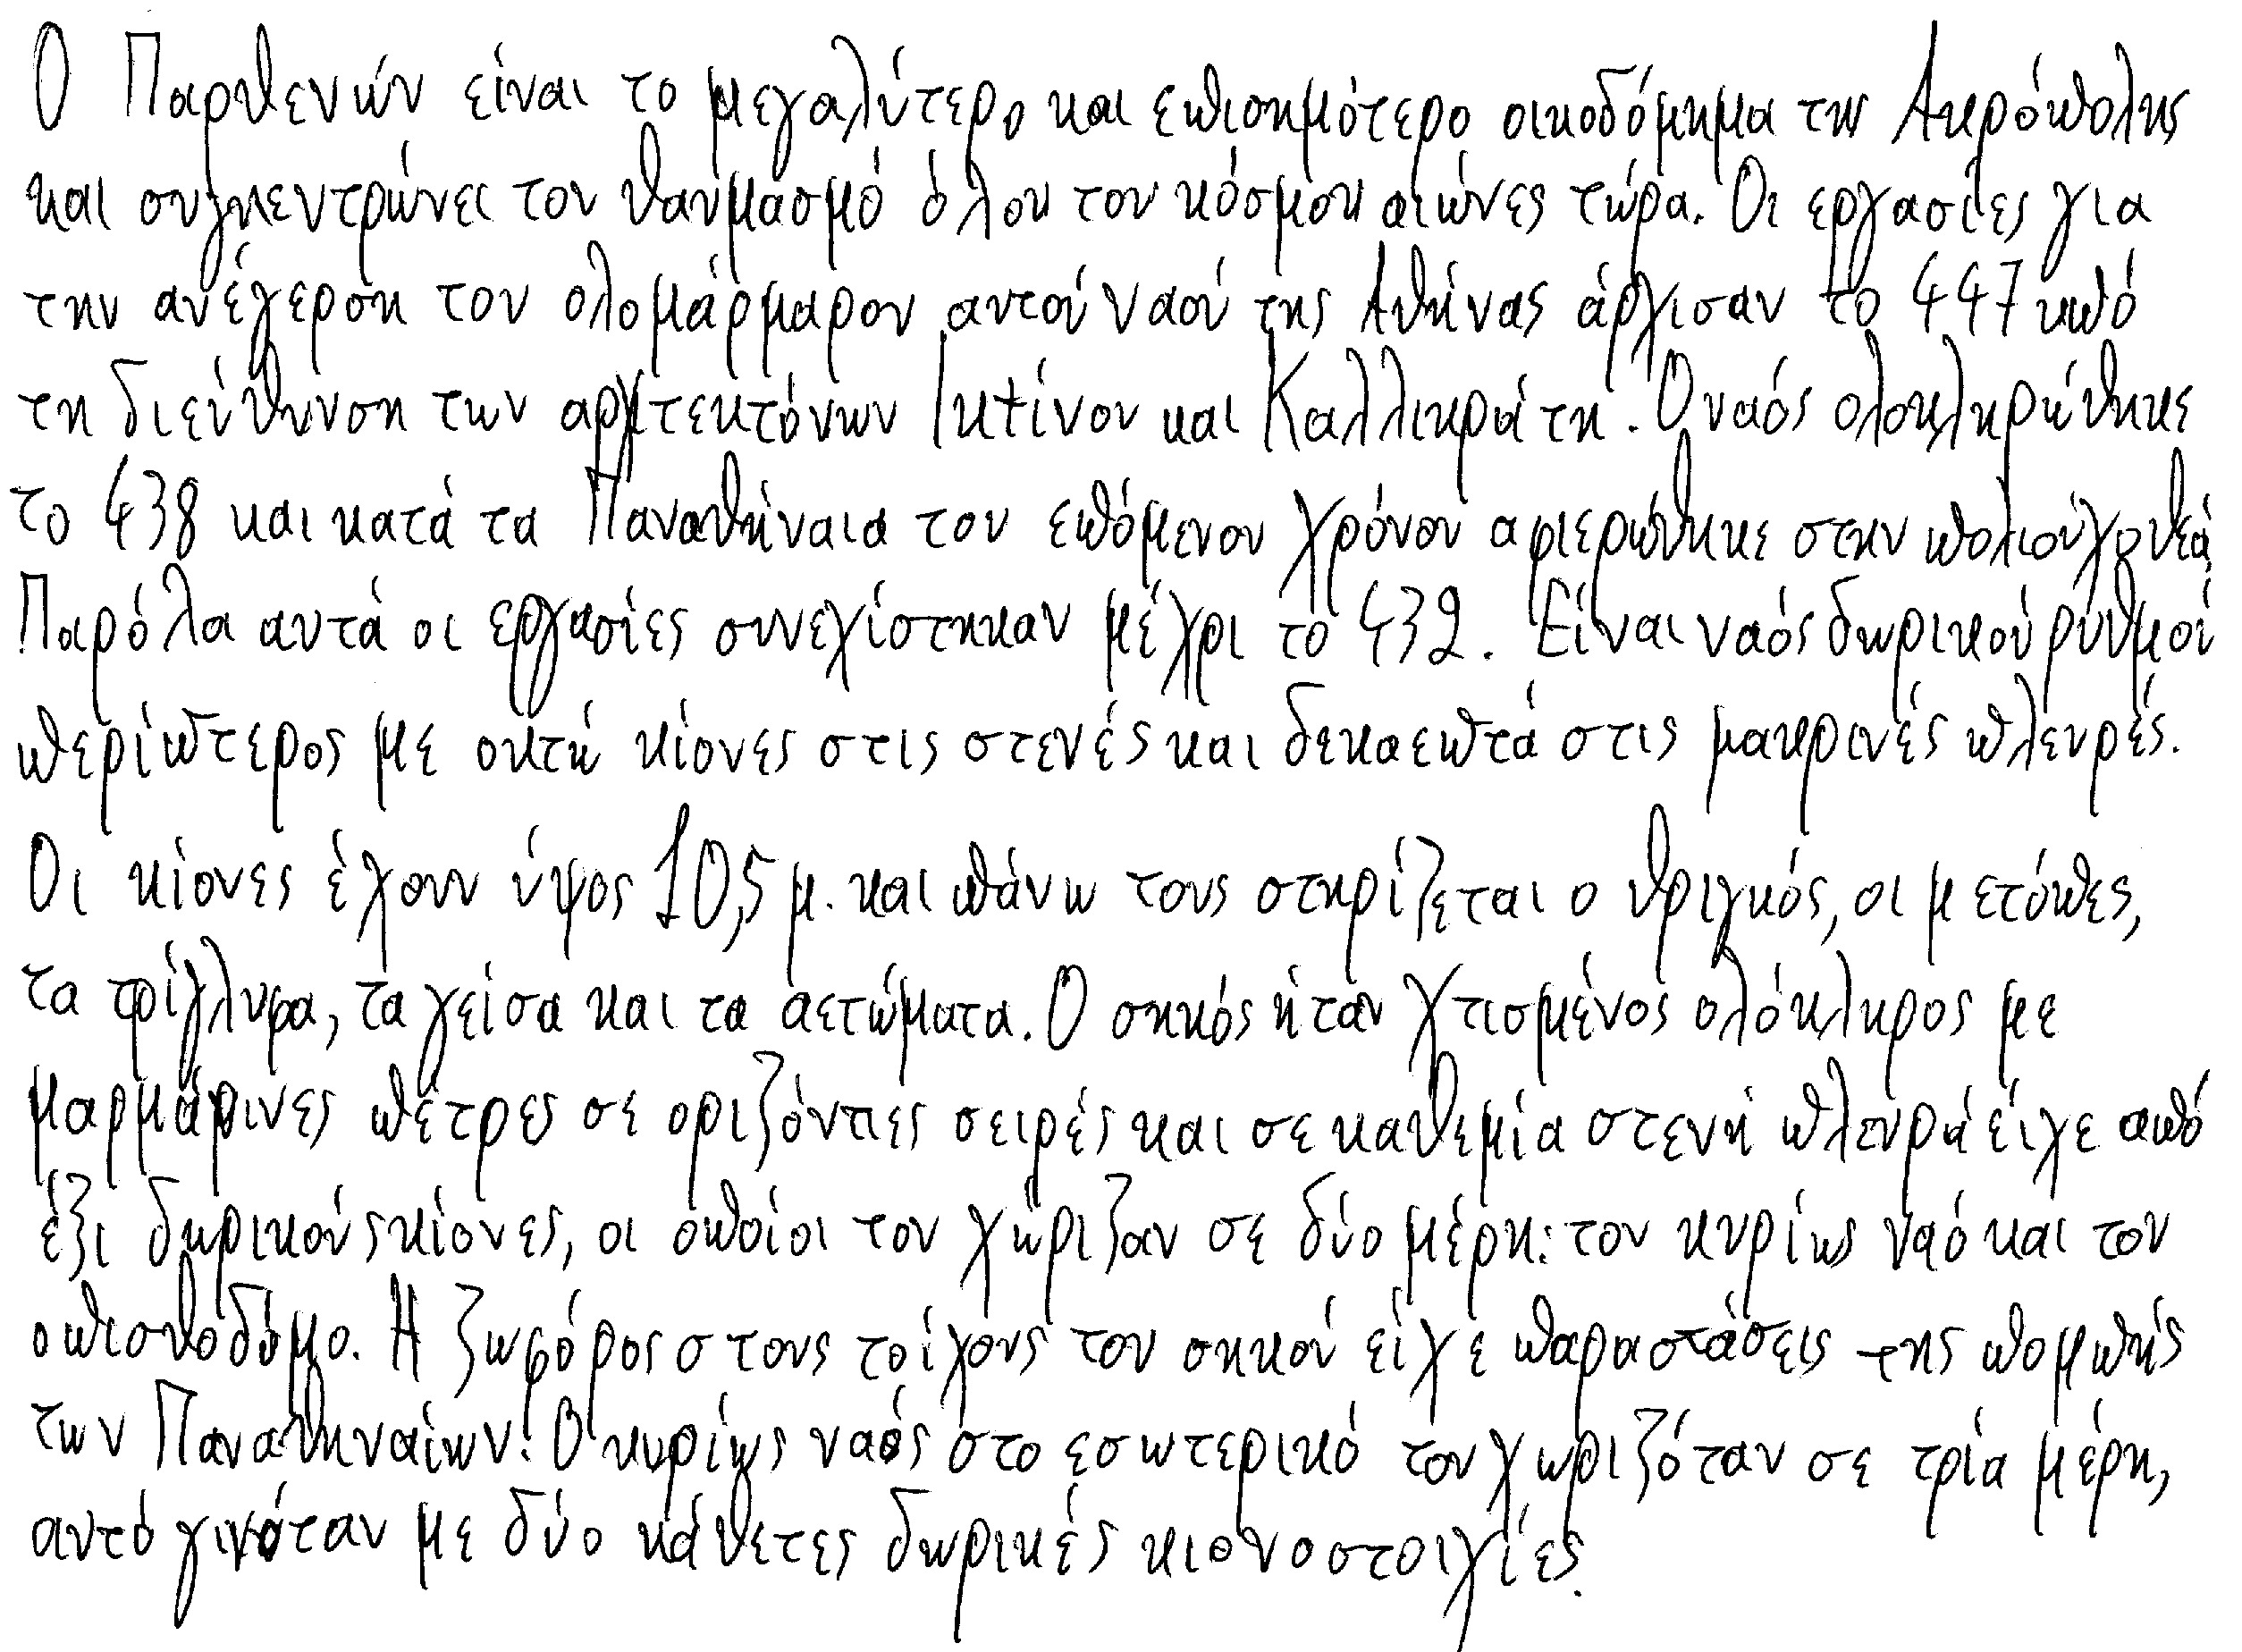 Ο Παρθενών είναι το μεγαλύτερο και επισημότερο οικοδόμημα της Ακρόπολης
και συγκεντρώνει τον θαυμασμό όλου του κόσμου αιώνες τώρα. Οι εργασίες για
την ανέγερση του ολομάρμαρου αυτού ναού της Αθήνας άρχισαν το 447 υπό
τη διεύθυνση των αρχιτεκτόνων Ικτίνου και Καλλικράτη. Ο ναός ολοκληρώθηκε
το 438 και κατά τα Παναθήναια του επόμενου χρόνου αφιερώθηκε στην πολιούχο θεά.
Παρόλα αυτά οι εργασίες συνεχίστηκαν μέχρι το 432. Είναι ναός δωρικού ρυθμού
περίπτερος με οκτώ κίονες στις στενές και δεκαεπτά στις μακρινές πλευρές.
Οι κίονες έχουν ύψος 10,5 μ. και πάνω τους στηρίζεται ο θριγκός, οι μετόπες,
τα τρίγλυφα, τα γείσα και τα αετώματα. Ο σηκός ήταν χτισμένος ολόκληρος με
μαρμάρινες πέτρες σε οριζόντιες σειρές και σε καθεμία στενή πλευρά είχε από
έξι δωρικούς κίονες, οι οποίοι τον χώριζαν σε δύο μέρη: τον κυρίως ναό και τον
οπισθοδόμο. Η ζωφόρος στους τοίχους του σηκού είχε παραστάσεις της πομπής
των Παναθηναίων. Ο κυρίως ναός στο εσωτερικό του χωριζόταν σε τρία μέρη,
αυτό γινόταν με δύο κάθετες δωρικές κιονοστοιχίες.